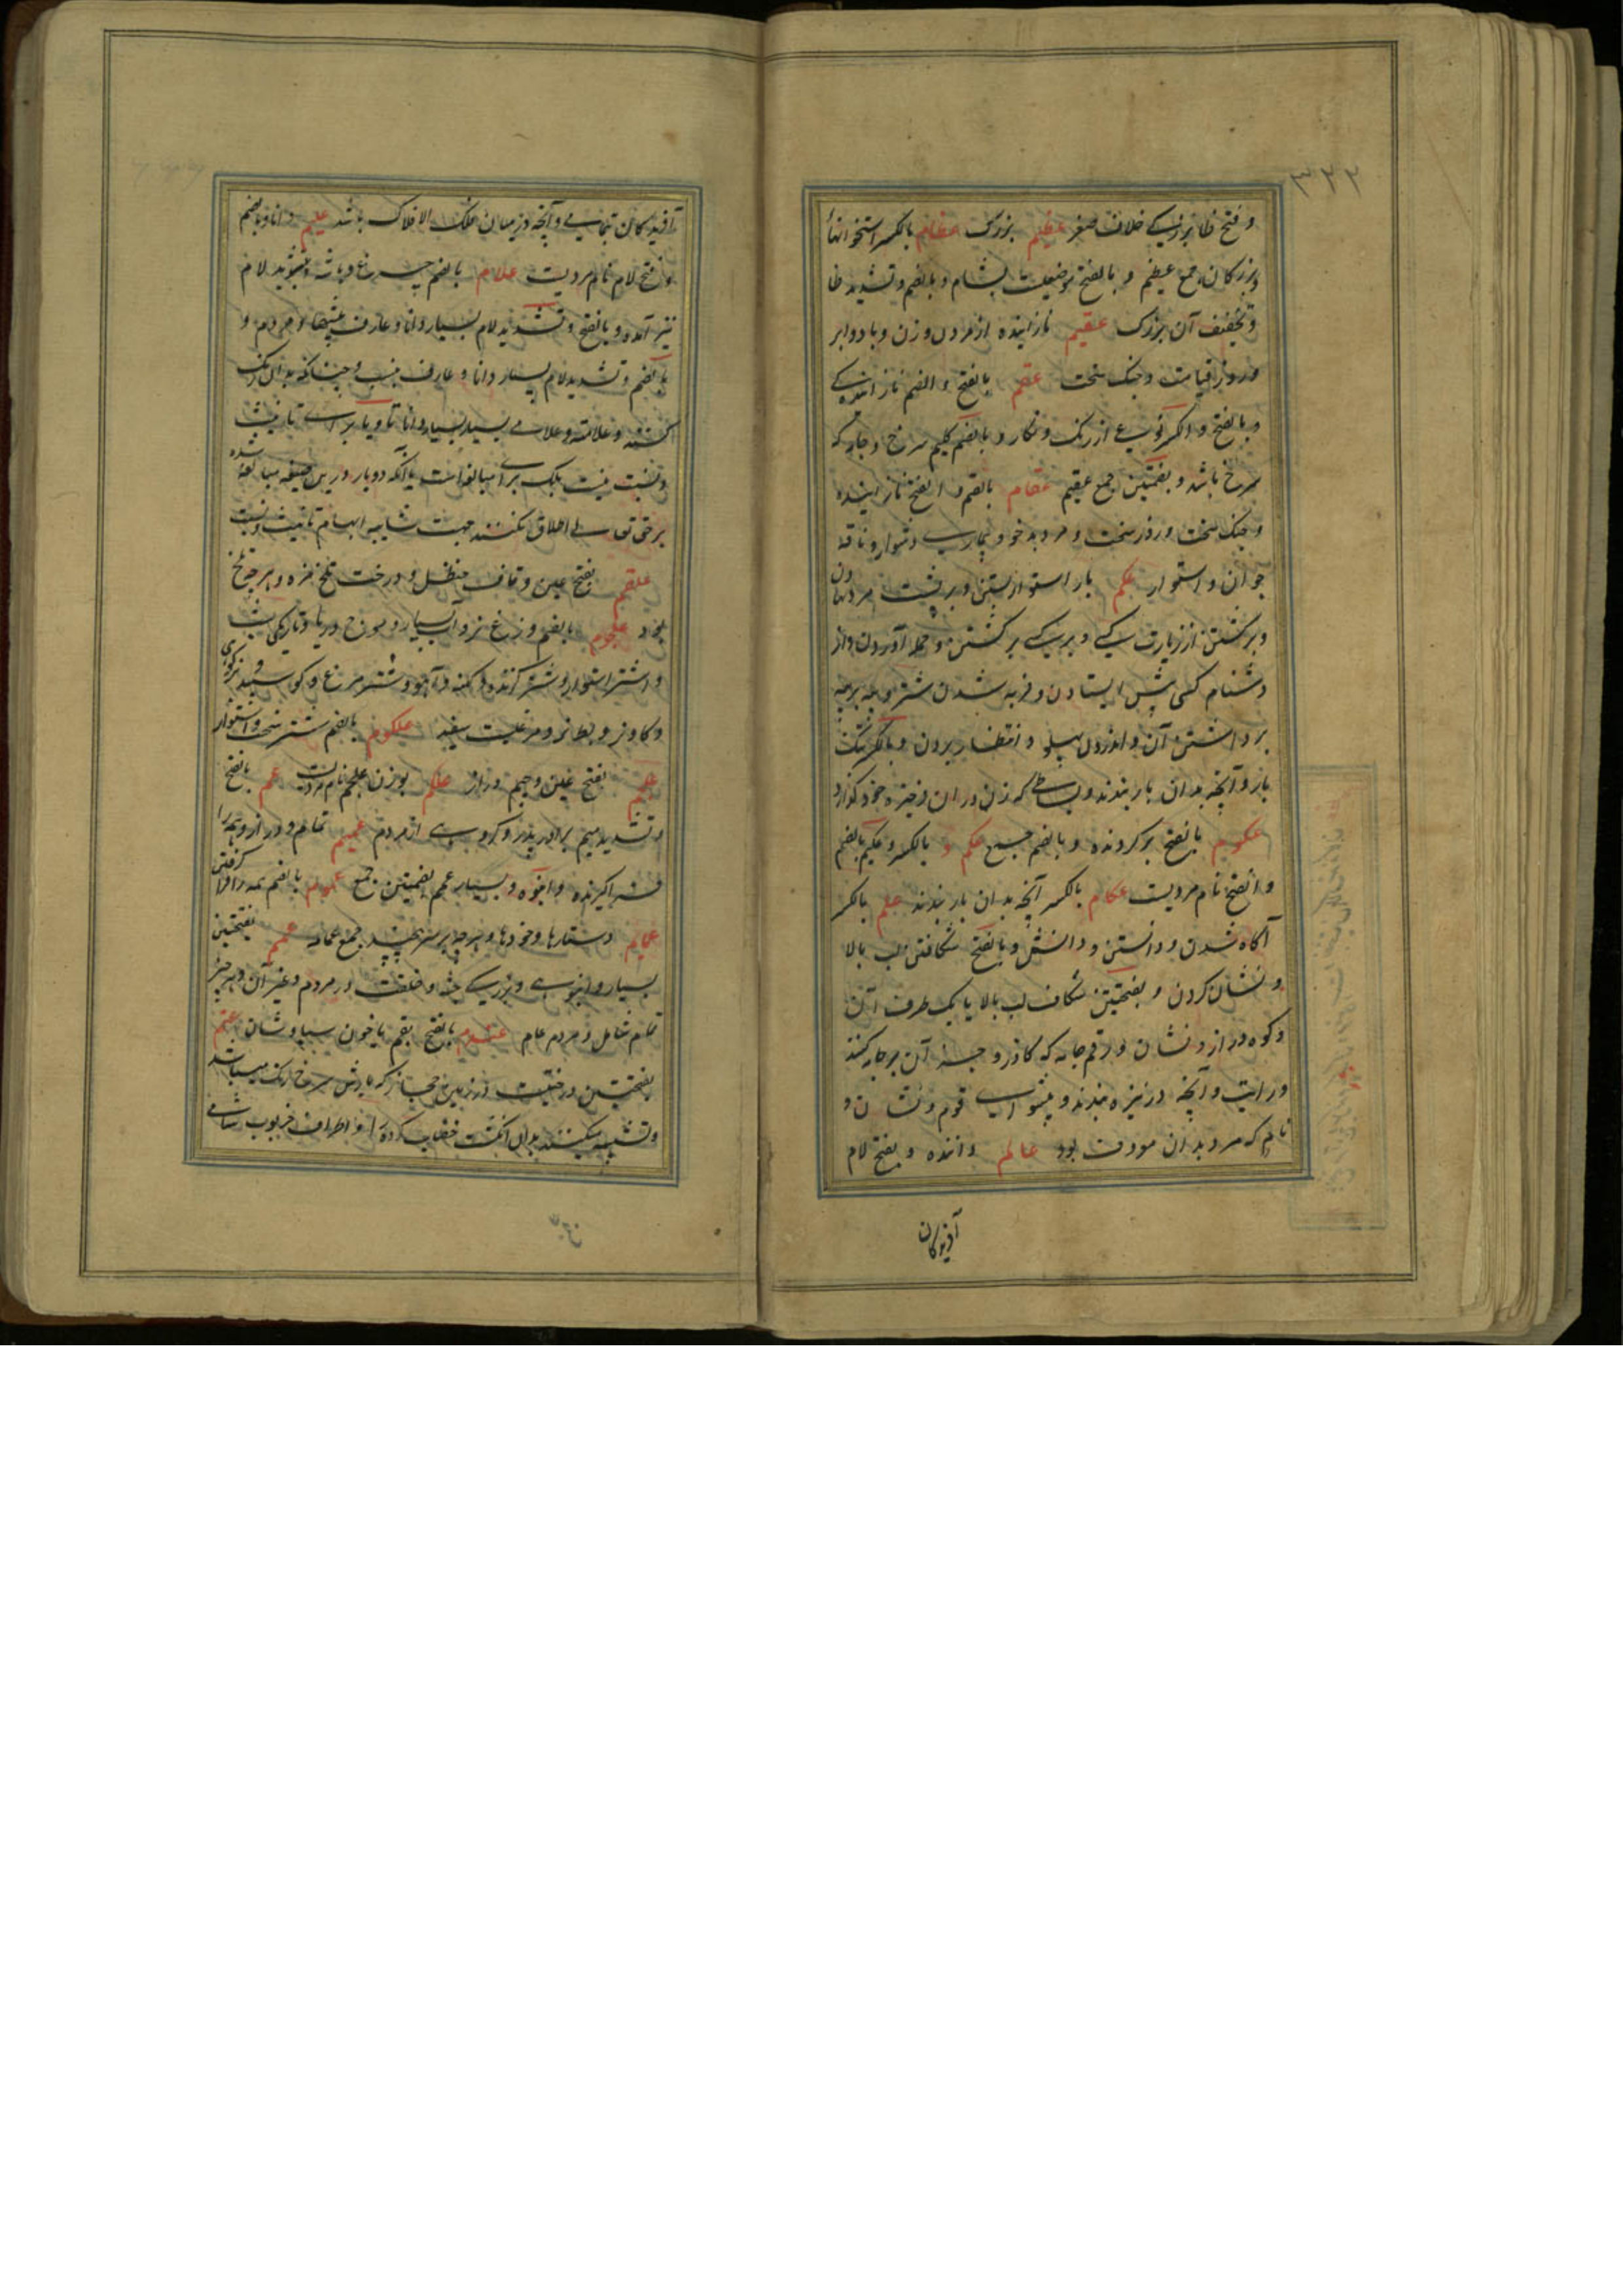 ۳۲۲
و فتح ظا بزرگی خلاف صغر عظیم بزرگ عظام بالکسر استخوانها
و بزرگان جمع عظیم و بالفتح موضعیست بشام و بالضم و تشدید ظا
و تخفیف آن بزرگ عقیم نازاینده از مردان و زن و باد و ابر
و روز قیامت و جنک سخت عقم بالفتح و الضم نازایندگی
و بالفتح و الکسر نوعی از رنک و نگار و بالضم گلیم سرخ و جامه که
سرخ باشد و بضمتین جمع عقیم عقام بالضم و الفتح نازاینده
و جنک سخت و روز سخت و مرد بدخو و بیماری دشوار و ناقه
جوان و استوار عکم بار استوار بستن و برپشت
و برگشتن از زیارت کسی و بر کسی برگشتن و حمله آوردن و از
دشنام کسی پس ایستادن و فربه شدن شتر و پیه بر پیه
برداشتن آن و اندرون پهلو و انتظار بردن و بالکسر تنگ
بار و آنچه بدان بار بندند و بساطی که زن در آن ذخیره خود گذارد
عکوم بالفتح برگردنده و بالضم جمع عکم و بالکسر و عکیم بالضم
و الفتح نام مردیست عکام بالکسر آنچه بدان بار بندند علم بالکسر
آگاه شدن و دانستن و دانش و بالفتح شکافتن لب بالا
و نشان کردن و بفتحتین شکاف لب بالا یا یک طرف آن
و کوه دراز و نشان و رقم جامه که گازر و جز آن بر جامه کنند
و رایت و آنچه در نیزه بندند و پیشوای قوم و نشان و
نام که مرد بدان معروف بود عالم داننده و بفتح لام
آفریدگان
آفریدگان بتمامی و آنچه در میان فلک الافلاک باشد علیم دانا و بالضم
و فتح لام نام مردیست علام بالضم چرغ و باشه و بتشدید لام
نیز آمده و بالفتح و تشدید لام بسیار دانا و عارف بنسبها و مردم و
بالضم و تشدید لام بسیار دانا و عارف بنسب و چنانکه بدان رنگ
کنند و علامة و علامی بسیار بسیار دانا تا و یا برای تانیث
و نسبت نیست بلکه برای مبالغه است با آنکه دو بار درین صیغه مبالغه شده
بر حق تعالی اطلاق نکنند جهت شایبه ابهام تانیث و نسبت
علقم بفتح عین و قاف حنظل و درخت تلخ مزه و هر چه تلخ
بود علجوم بالضم وزغ نر و آب بسیار و موج دریا و تاریکی شب
و اشتر استوار و شتر و آهو و شترمرغ و گوسپند
و گاو نر و بط نر و مرغیست سفید علکوم بالضم شتر سخت و استوار
علجم بفتح عین و جیم دراز علکم بوزن علجم نام مردیست عم بالفتح
و تشدید میم برادر پدر و گروهی از مردم عمیم تمام و دراز و همه را
فراگیرنده و انبوه و بسیار عمم بضمتین جمع عموم بالضم همه را فرا گرفتن
عمایم دستارها و خودها و هر چه بر سر پیچند جمع عمامه عمم بفتحتین
بسیار و انبوهی و بزرگی جثه و خلقت در مردم و غیر آن و هر چیز
تمام شامل و مردم عام عندم بالفتح بقم یا خون سیاوشان عنم
بفتحتین درختیست در زمین حجاز که بارش سرخ رنگ میباشد
و تشبیه میکنند بدان انگشت خضاب کرده را و اطراف خرنوب شامی